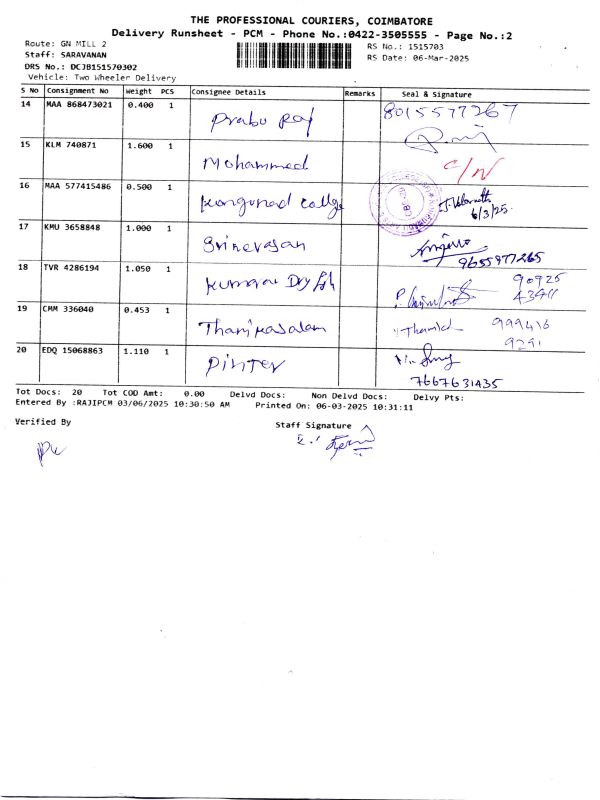 THE PROFESSIONAL COURIERS, COIMBATORE
Delivery Runsheet - PCM - Phone No.:0422-3505555 - Page No.:2
Route: GN MILL 2 RS No.: 1515703
Staff: SARAVANAN RS Date: 06-Mar-2025
DRS No.: DCJB151570302
Vehicle: Two Wheeler Delivery
S No Consignment No Weight PCS Consignee Details Remarks Seal & Signature
14 MAA 868473021 0.400 1 Prabu Raj 8015577267
15 KLM 740871 1.600 1 Mohammed C/N
16 MAA 577415486 0.500 1 Kongunad college 6/3/25
17 KMU 3658848 1.000 1 Srinevasan 9655977265
18 TVR 4286194 1.050 1 Kumaran Dry fish 90925
19 CMM 336040 0.453 1 Thanikasalam 999416
9291
20 EDQ 15068863 1.110 1 Pinter
7667631435
Tot Docs: 20 Tot COD Amt: 0.00 Delvd Docs: Non Delvd Docs: Delvy Pts:
Entered By :RAJIPCM 03/06/2025 10:30:50 AM Printed On: 06-03-2025 10:31:11
Verified By Staff Signature